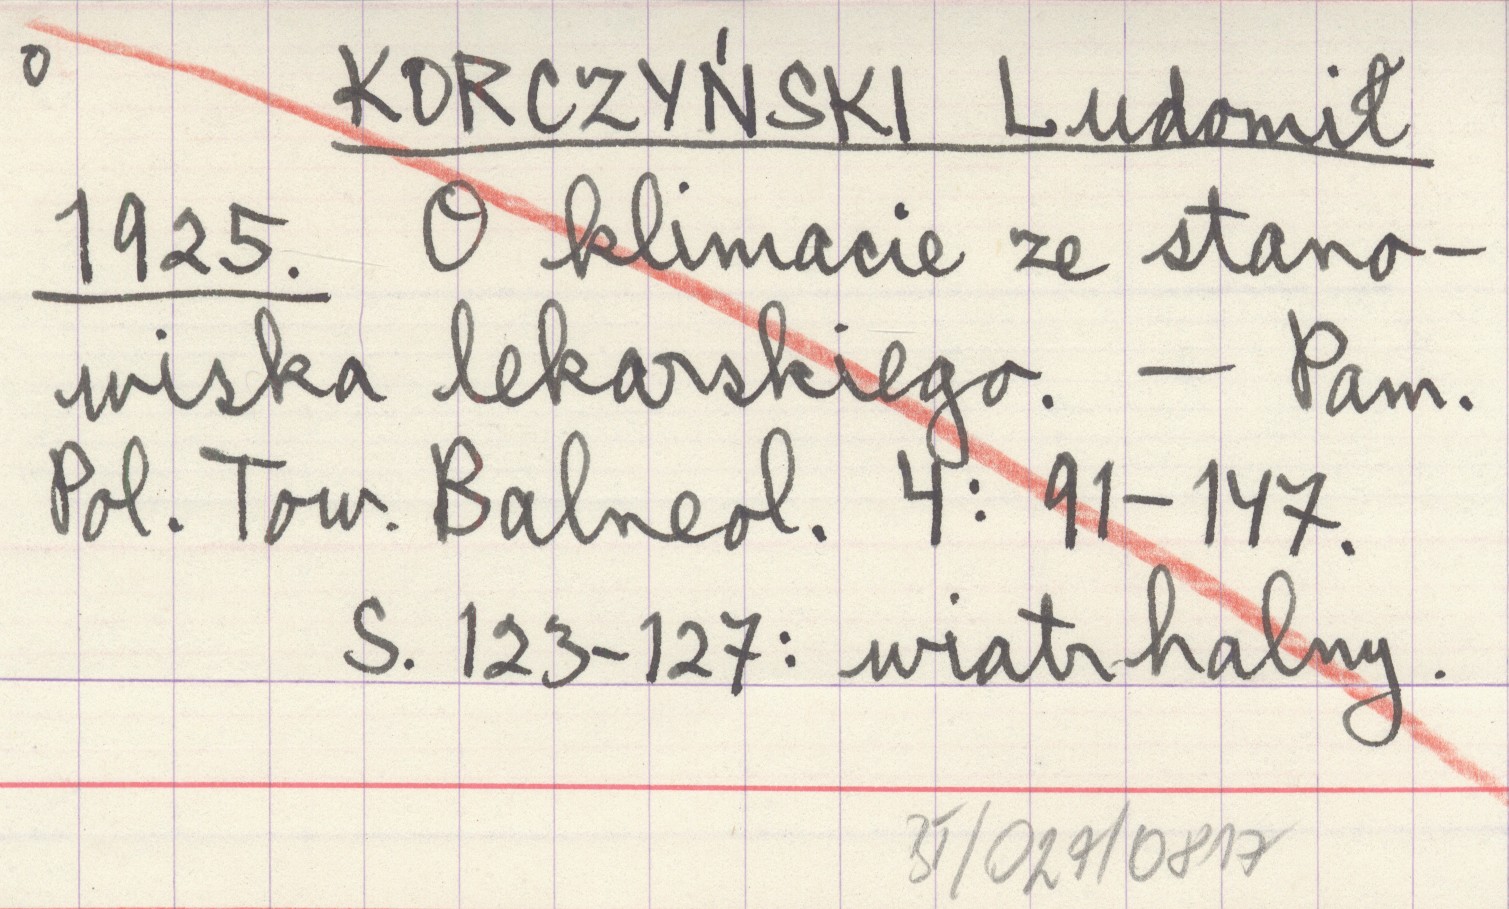 o KORCZYŃSKI Ludomił
1925. O klimacie ze stano-
wiska lekarskiego. — Pam.
Pol. Tow. Balneol. 4: 91-147.
S. 123-127: wiatr halny.